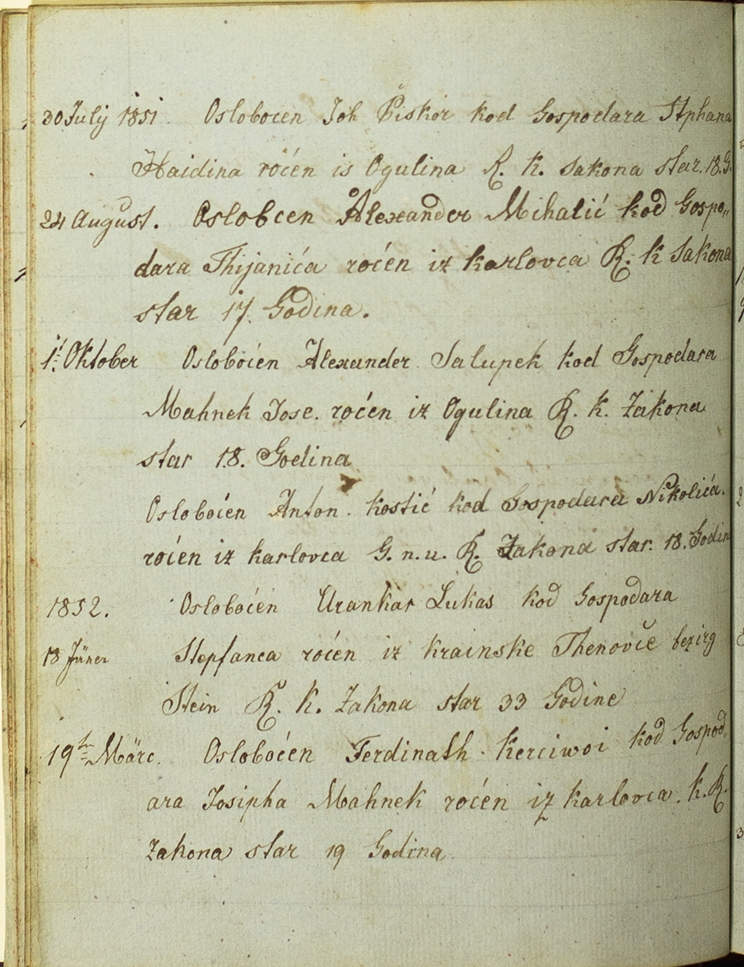 30 July 1851. Oslobocen Joh Piskor kod Gospodara Stphana
Haidina roćen is Ogulina R. k. Sakona star. 18. G.
24 August. Oslobcen Alexander Mihalić kod Gospo„
dara Thijanića roćen iz karlovca R. k Sakona
star 17. Godina.
1t. Oktober Osloboćen Alexander Salupek kod Gospodara
Mahnek Jose. roćen iz Ogulina R. K. Zakona
star 18. Godina
Osloboćen Anton. kostić kod Gospodara Nikolića.
roćen iz karlovca G. n. u. R. Zakona star. 18. Godin
1852. Osloboćen Urankar Lukas kod Gospodara
18 Jäner Stepfanca roćen iz Krainske Thenovče bezirg
Stein R. K. Zakona star 33 Godine
19ten März. Osloboćen Ferdinath. Kerciwoi kod Gospod„
ara Josipha Mahnek roćen iz karlovca. k. R.
Zakona star 19 Godina